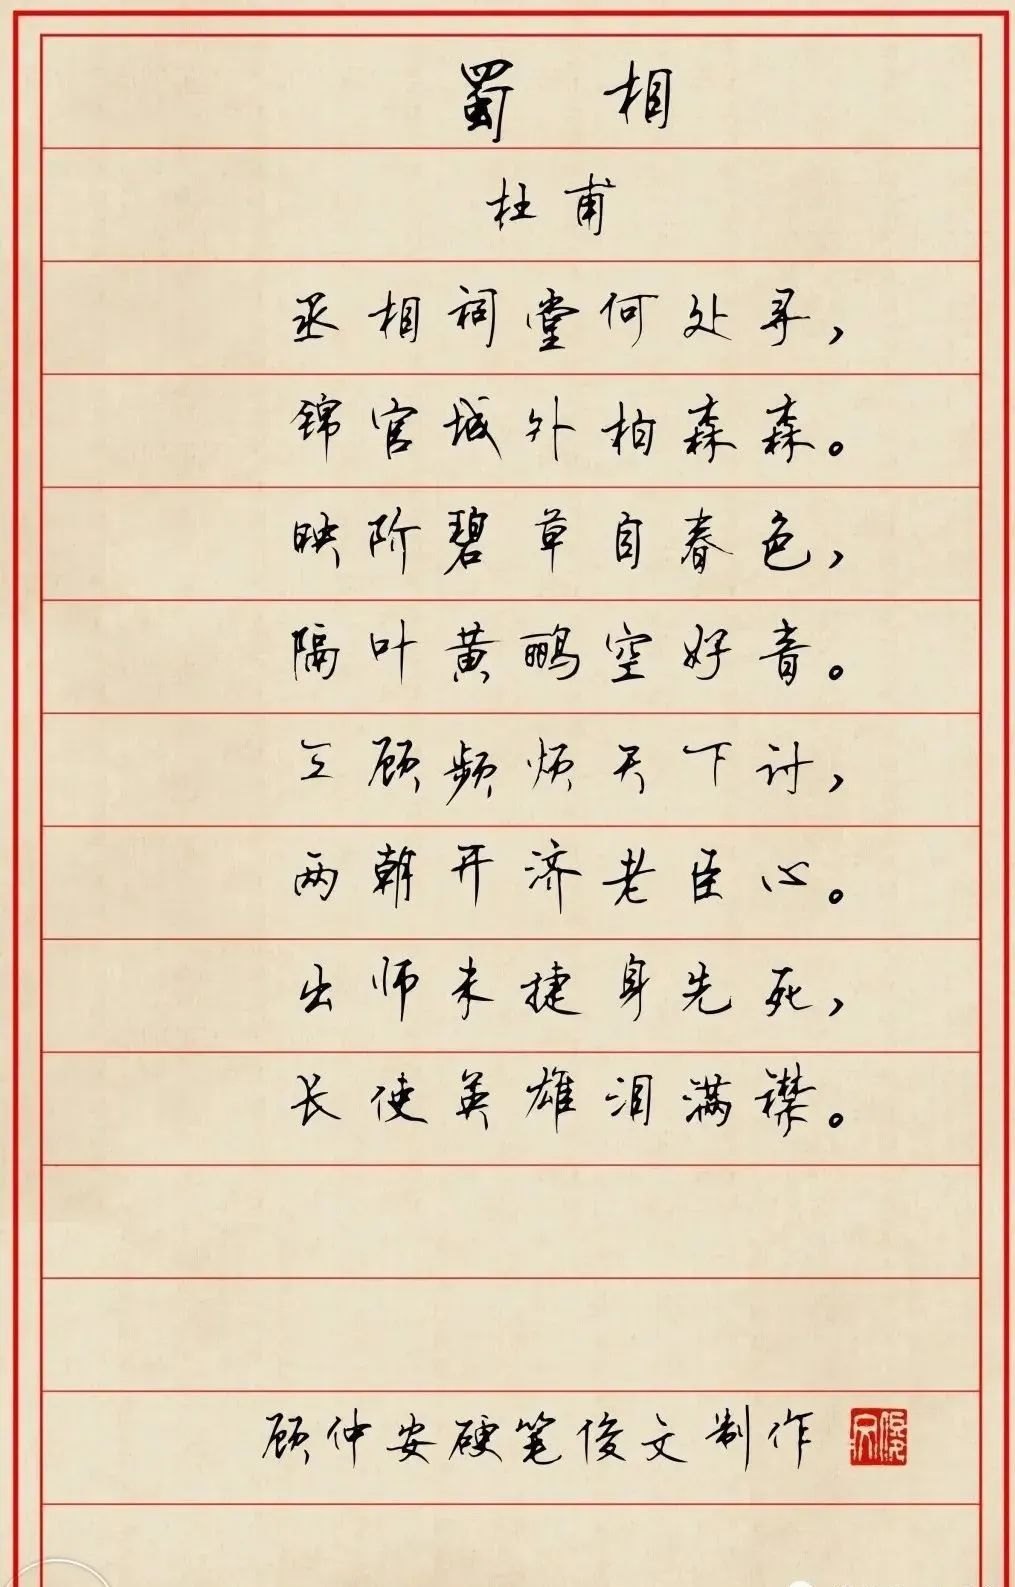 蜀相
杜甫
丞相祠堂何处寻，
锦官城外柏森森。
映阶碧草自春色，
隔叶黄鹂空好音。
三顾频烦天下计，
两朝开济老臣心。
出师未捷身先死，
长使英雄泪满襟。
顾仲安硬笔俊文制作